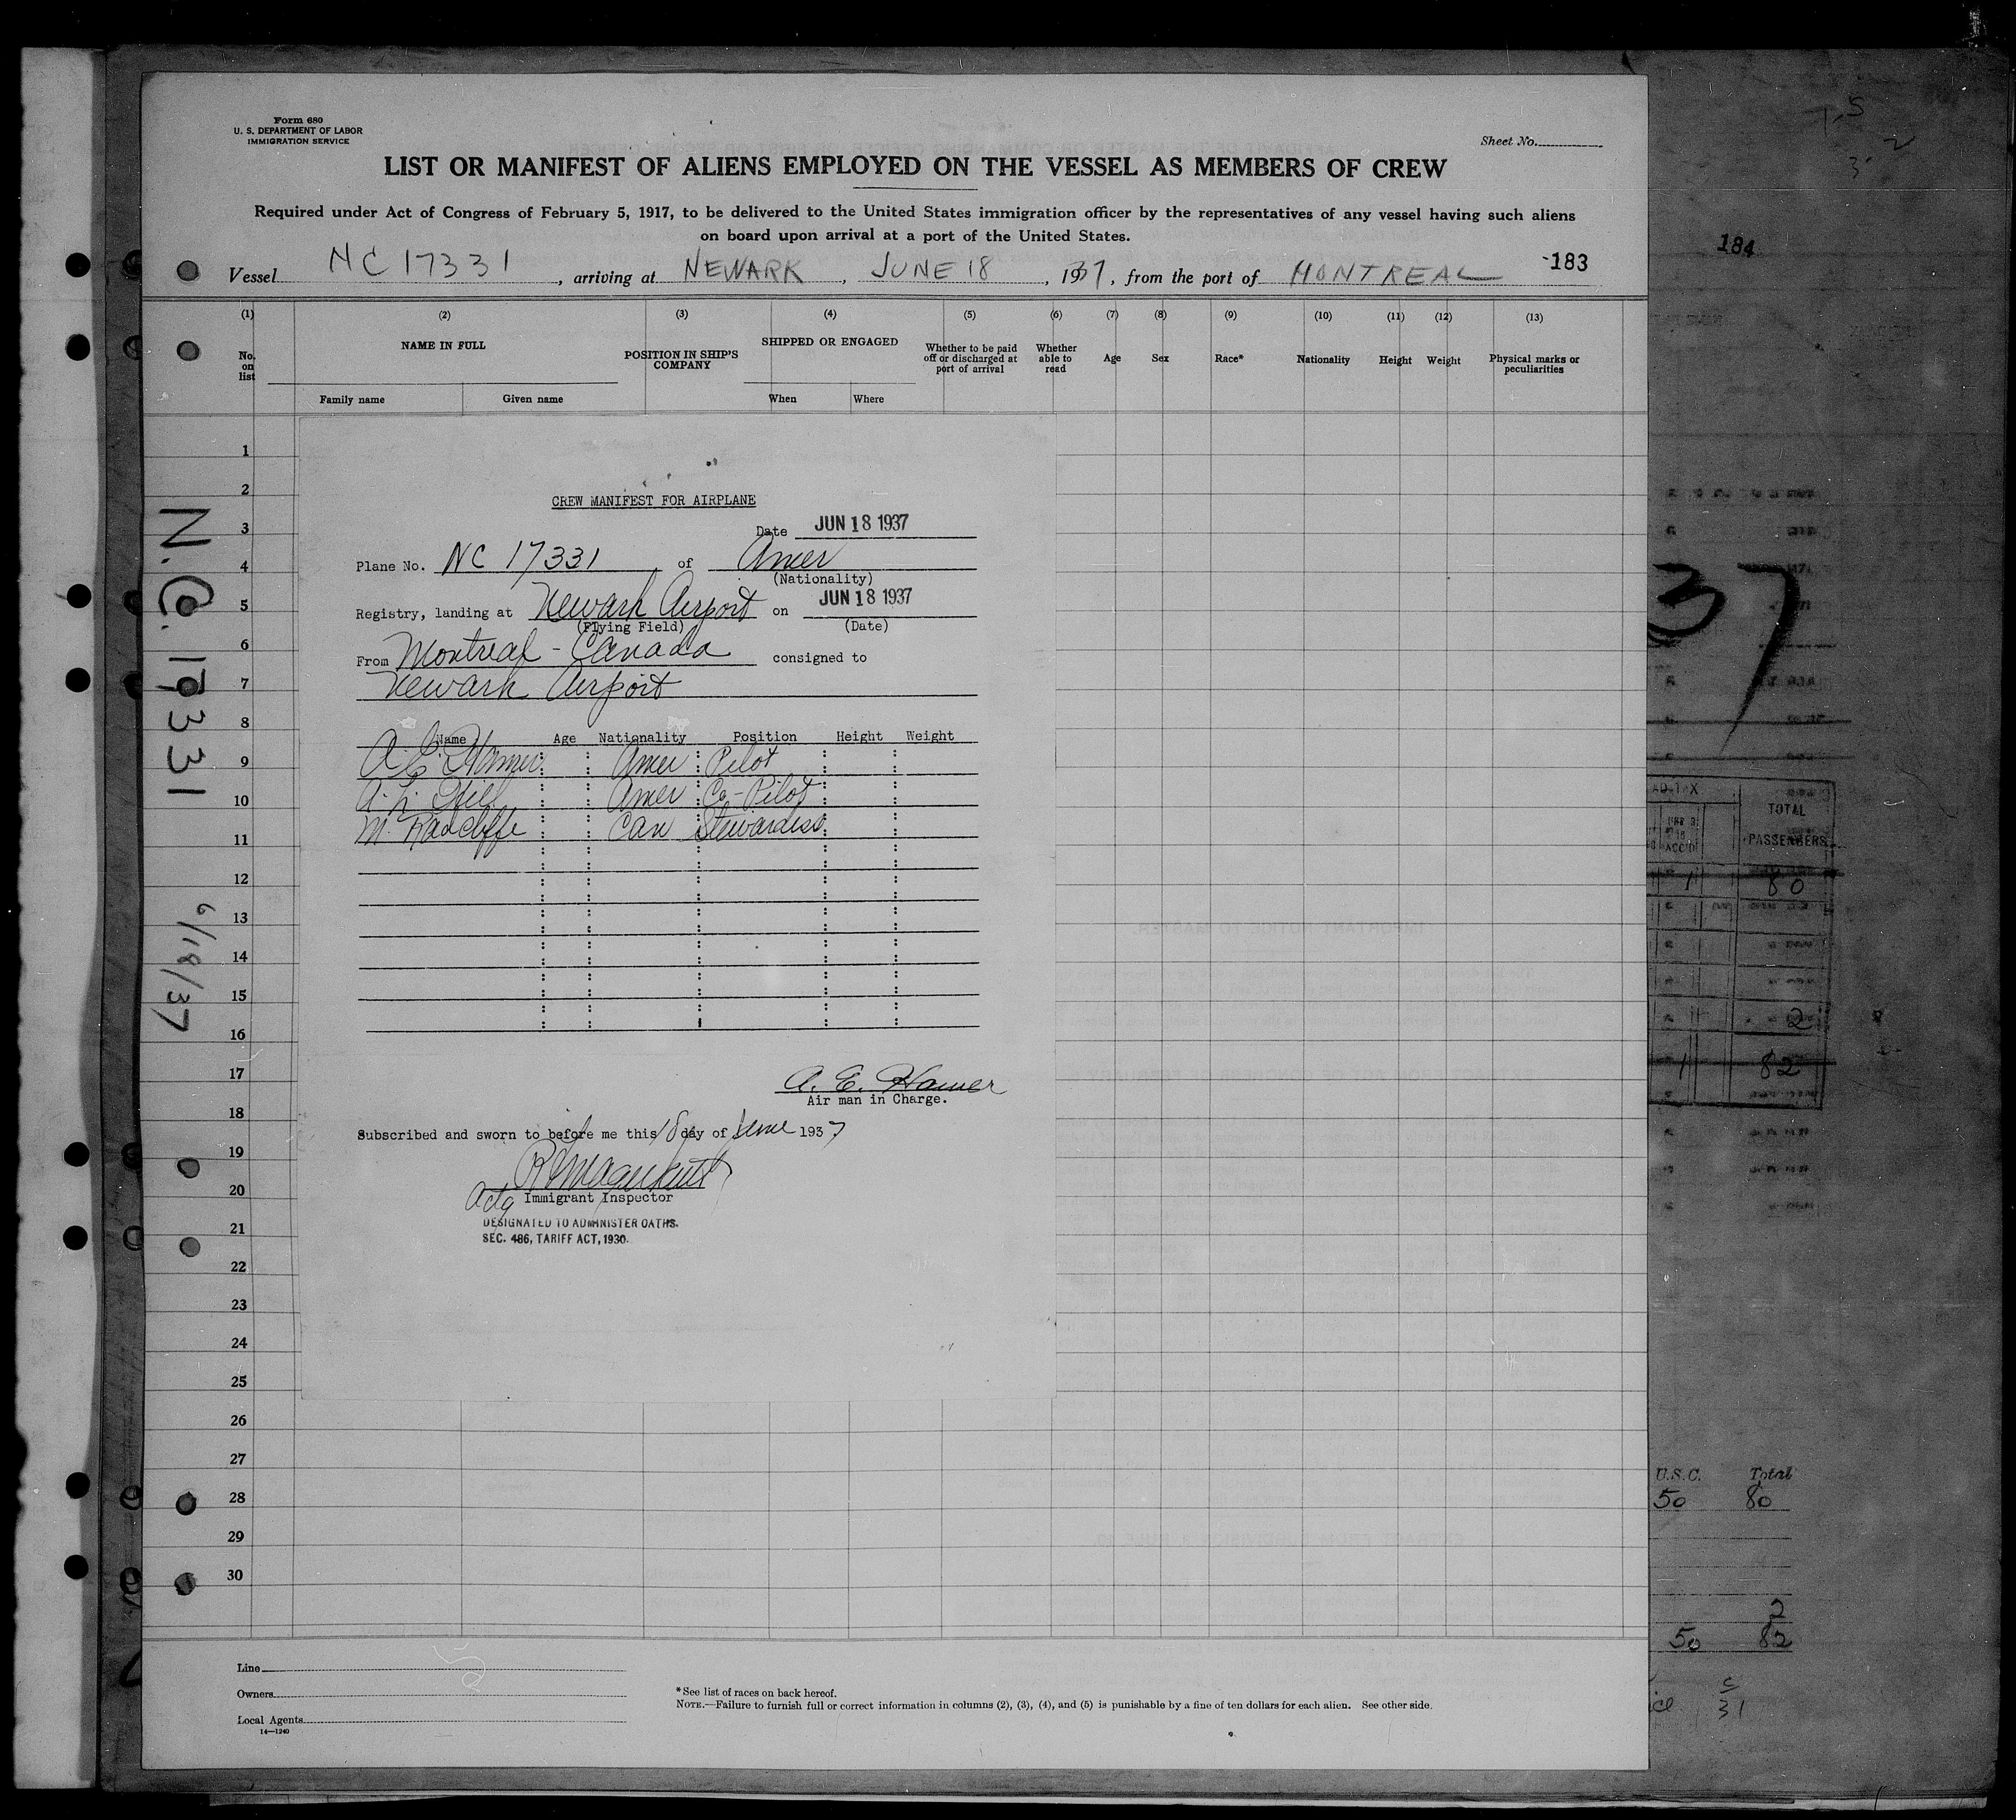 Form 680
U. S. DEPARTMENT OF LABOR
IMMIGRATION SERVICE
Sheet No.
LIST OR MANIFEST OF ALIENS EMPLOYED ON THE VESSEL AS MEMBERS OF CREW
Required under Act of Congress of February 5, 1917, to be delivered to the United States immigration officer by the representatives of any vessel having such aliens
on board upon arrival at a port of the United States.
184
183
Vessel NC 17331, arriving at NEWARK, JUNE 18, 1937, from the port of MONTREAL
(1) (2) (3) (4) (5) (6) (7) (8) (9) (10) (11) (12) (13)
No. on list
NAME IN FULL
Family name Given name
POSITION IN SHIP'S COMPANY
SHIPPED OR ENGAGED
When Where
Whether to be paid off or discharged at port of arrival
Whether able to read
Age Sex Race* Nationality Height Weight Physical marks or peculiarities
1
2
3
4
5
6
7
8
9
10
11
12
13
14
15
16
17
18
19
20
21
22
23
24
25
26
27
28
29
30
N.C. 17331
6/18/37
CREW MANIFEST FOR AIRPLANE
Date JUN 18 1937
Plane No. NC 17331 of Amer
(Nationality)
Registry, landing at Newark Airport on JUN 18 1937
(Flying Field) (Date)
From Montreal - Canada consigned to
Newark Airport
Name Age Nationality Position Height Weight
A. E. Hamer Amer Pilot
A. L. Hill Amer Co-Pilot
M. Radcliffe Can Stewardess
A. E. Hamer
Air man in Charge.
Subscribed and sworn to before me this 18 day of June 1937
Actg Immigrant Inspector
DESIGNATED TO ADMINISTER OATHS.
SEC. 486, TARIFF ACT, 1930.
Line
Owners
Local Agents
14—1240
*See list of races on back hereof.
NOTE.—Failure to furnish full or correct information in columns (2), (3), (4), and (5) is punishable by a fine of ten dollars for each alien. See other side.
37
TOTAL
PASSENGERS
80
2
82
U.S.C. Total
50 80
2
50 82
31